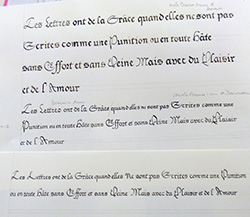 Les Lettres ont de la Grâce quand elles ne sont pas
Ecrites comme une Punition ou en toute hâte
sans Effort et sans Peine Mais avec du Plaisir
et de l'Amour
Les Lettres ont de la Grâce quand elles ne sont pas Ecrites comme une
Punition ou en toute hâte sans Effort et sans Peine Mais avec du Plaisir
et de l'Amour
Les Lettres ont de la Grâce quand elles ne sont pas Ecrites comme une Punition
ou en toute hâte sans Effort et sans Peine Mais avec du Plaisir et de l'Amour